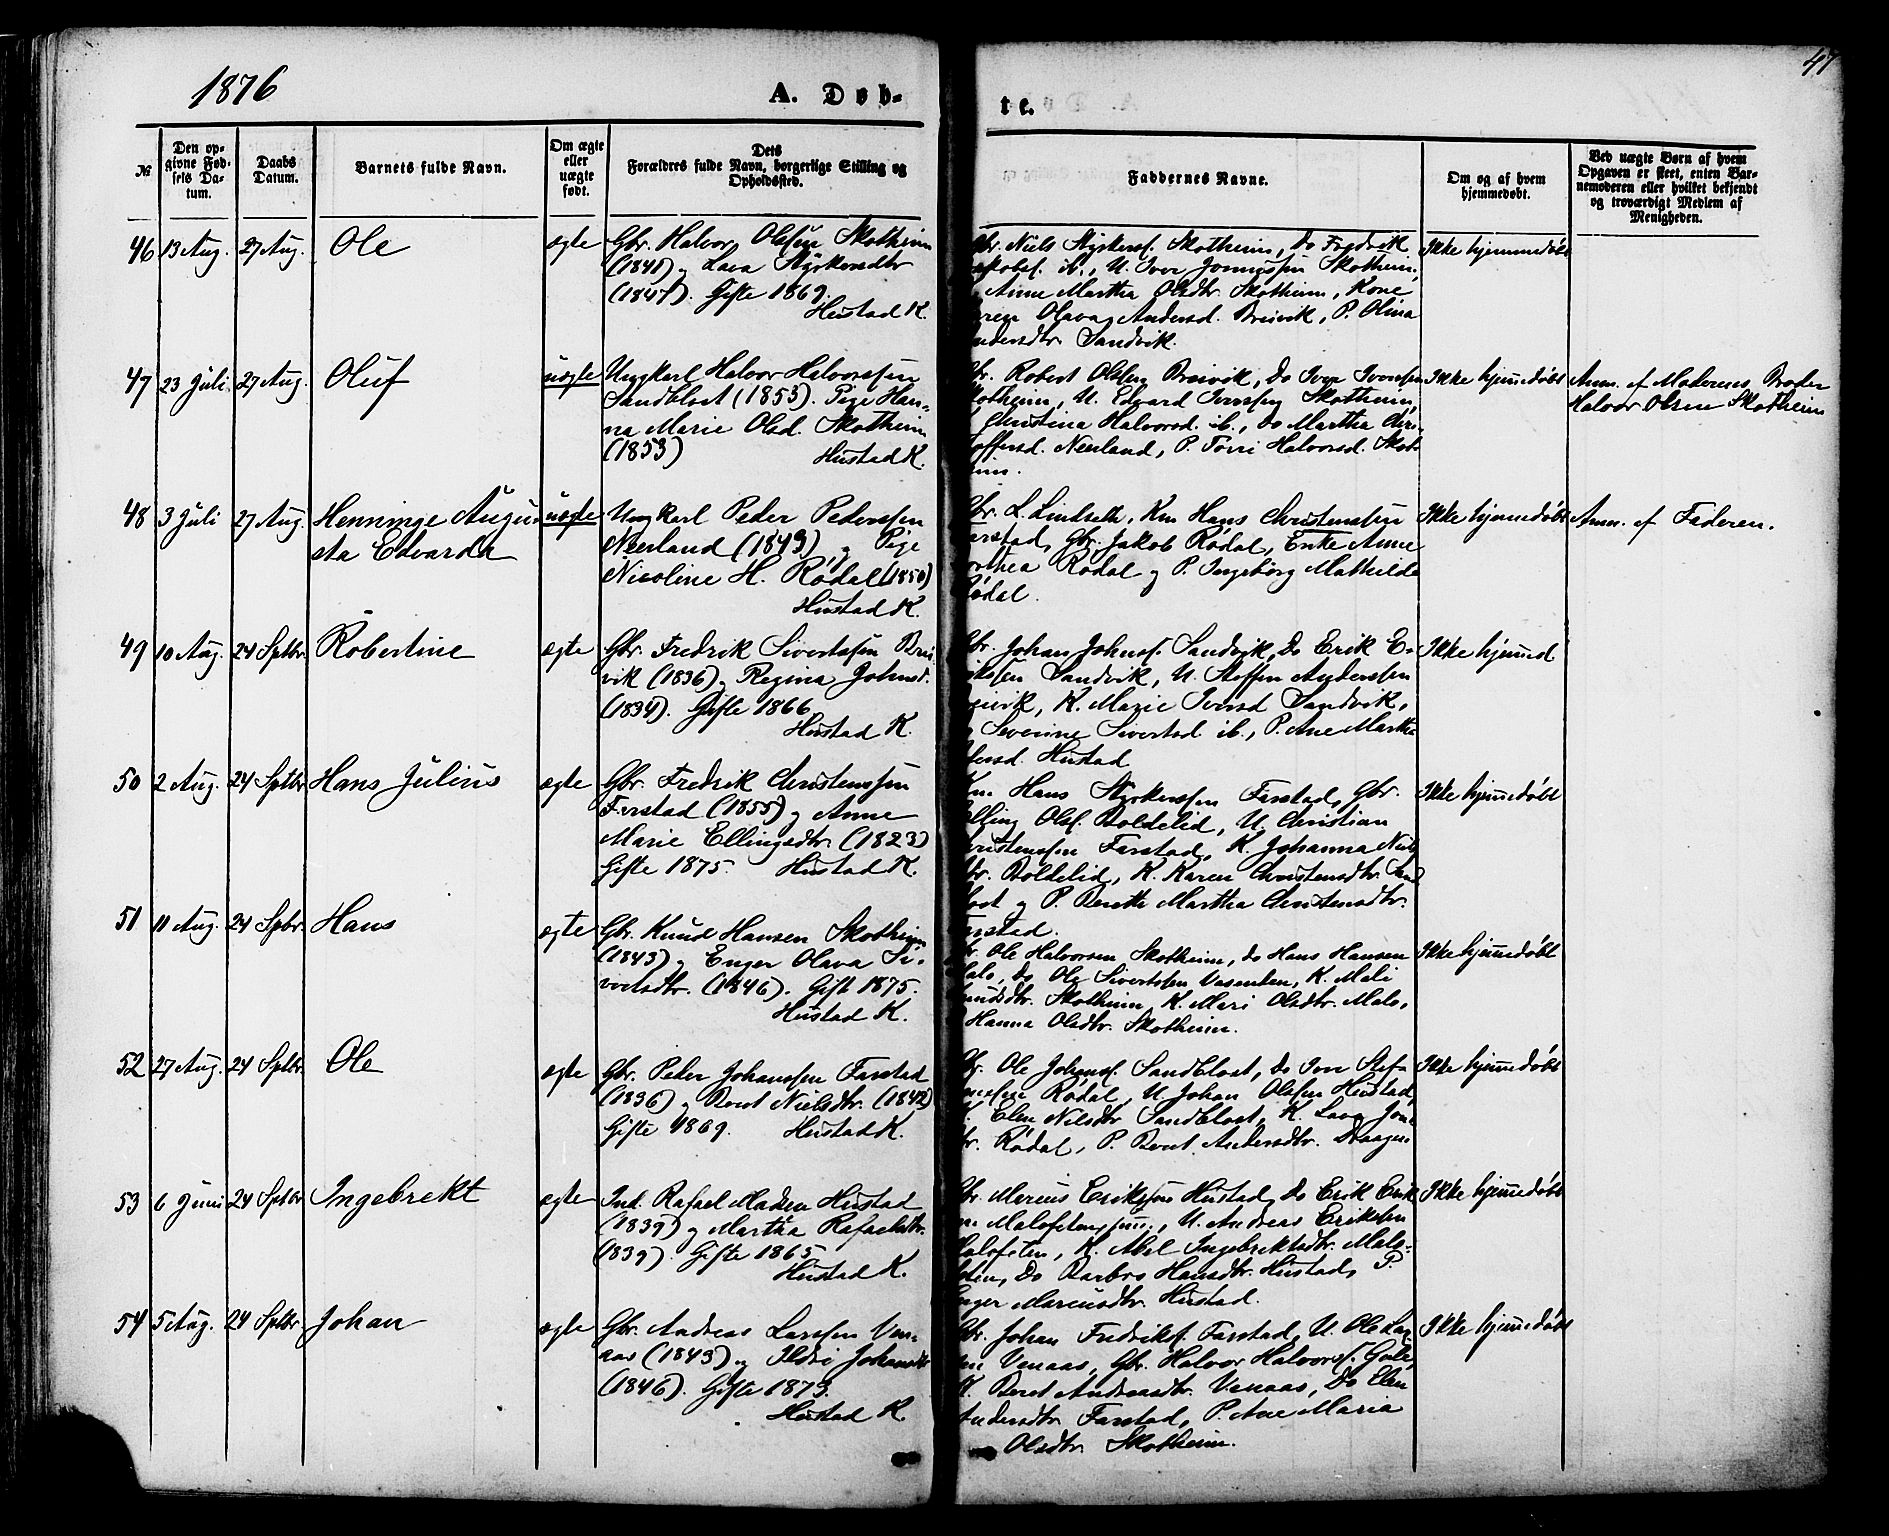 1876
A. Døb-
te.
47
№
Den op-
givne Fød-
sels Da-
tum.
Daabs
Datum.
Barnets fulde Navn.
Om ægte
eller
uægte
født.
Dets
Forældres fulde Navn, borgerlige Stilling og
Opholdssted.
Faddernes Navne.
Om og af hvem
hjemmedøbt.
Ved uægte Børn af hvem
Opgaven er skeet, enten Bar-
nemoderen eller hvilket bekjendt
og troværdigt Medlem af
Menigheden.
46 13 Aug. 27 Aug. Ole ægte
Gbr. Halvor Olsen Skotheim
(1841) og Lava Styrkersdtr
(1847). Gifte 1869.
Hustad K.
Gbr. Niels Styrkerss. Skotheim, Do Fredrik
Jakobss. ib., U. Iver Skotheim,
Anne Martha Olsdtr. Skotheim, Kone
Karen Olava Andersd. Breivik, P. Olina
Andersdtr. Sandvik.
Ikke hjemmedøbt
47 23 Juli 27 Aug. Oluf uægte
Ungkarl Halvor Halvorssen
Sandblost (1853). Pige Han-
na Marie Olsd. Skotheim
(1853) Hustad K.
Gbr. Robert Olsen Breivik, Do Iver Iverssen
Skotheim, U. Edvard Iverssen Skotheim,
Christina Halvorsd. ib., Do Martha Chri-
stoffersd. Neerland, P. Halvorsd. Skot-
heim.
Ikke hjemmedøbt
Anm. af Moderens Broder
Halvor Olsen Skotheim
48 3 Juli 27 Aug. Henninge Augu-
sta Edvarda
uægte
Ungkarl Peder Pederssen
Neerland (1849) og Pige
Nicoline H. Rødal (1850)
Hustad K.
Gbr. L. Lindseth, Km Hans Christenssen
Farstad, Gbr. Jakob Rødal, Enke Anne
Dorthea Rødal og P. Ingeborg Mathilde
Rødal.
Ikke hjemmedøbt
Anm. af Faderen.
49 10 Aug. 24 Sptbr. Robertine ægte
Gbr. Fredrik Sivertssen Brei-
vik (1836) og Regina Johnsd.
(1834). Gifte 1866
Hustad K.
Gbr. Johan Johnss. Sandvik, Do Erik E-
rikssen Sandvik, U. Steffen Anderssen
Breivik, K. Marie Iversd Sandvik,
Severine Sivertsd ib., P. Ane Martha
Hustad
Ikke hjemmed
50 2 Aug. 24 Sptbr Hans Julius ægte
Gbr. Fredrik Christenssen
Farstad (1855) og Anne
Marie Ellingsdtr. (1823)
Gifte 1875. Hustad K.
Km. Hans Styrkerssen Farstad, Gbr.
Elling Olss. Boldelid, U. Christian
Christenssen Farstad, K. Johanna Niels
dtr. Boldelid, K. Karen Christensdtr. Sand
blost og P. Berethe Martha Christensdtr.
Farstad.
Ikke hjemmedøbt
51 11 Aug. 24 Spbr. Hans ægte
Gbr. Knud Hansen Skotheim
(1843) og Enger Olava Si-
vertsdtr. (1846). Gift 1875.
Hustad K.
Gbr. Ole Halvorsen Skotheim, Do Hans Hansen
Malo, Do Ole Sivertssen Vasenden, K. Mali
Knudsdtr. Skotheim, K. Mari Olsdtr. Malo,
Hanna Olsdtr. Skotheim.
Ikke hjemmedøbt
52 27 Aug. 24 Sptbr. Ole ægte
Gbr. Peder Johanssen Farstad
(1836) og Beret Nielsdtr. (1842)
Gifte 1869. Hustad K.
Gbr. Ole Johanss. Sandblost, Do Iver Stef-
fenssen Rødal, U. Johan Olssen Hustad,
K. Elen Nielsdtr Sandblost, K. Lava Jons
dtr. Rødal, P. Beret Andersdtr. Draagen
Ikke hjemmedøbt
53 6 Juni 24 Sptbr Ingebrekt ægte
Ind. Rafael Madsen Hustad
(1839) og Martha Rafaelsdtr.
(1839). Gifte 1865
Hustad K.
Gbr. Marcus Erikssen Hustad, Do Erik Erik
sen Malefeten jun., U. Andreas Erikssen
Malefeten, K. Abel Ingebrektsdtr. Male-
feten, Do Barbro Hansdtr. Hustad, P.
Enger Marcusdtr. Hustad.
Ikke hjemmedøbt
54 5 Aug. 24 Sptbr Johan ægte
Gbr. Andreas Larssen Ven-
aas (1843) og Ildri Johansdtr
(1846). Gifte 1873.
Hustad K.
Gbr. Johan Fredrikss. Farstad, U. Ole Lar-
sen Venaas, Gbr. Halvor Halvorss. Gule,
K. Beret Andreasdtr. Venaas, Do Elen
Andersdtr Farstad, P. Ane Maria
Olsdtr Skotheim.
Ikke hjemmedøbt